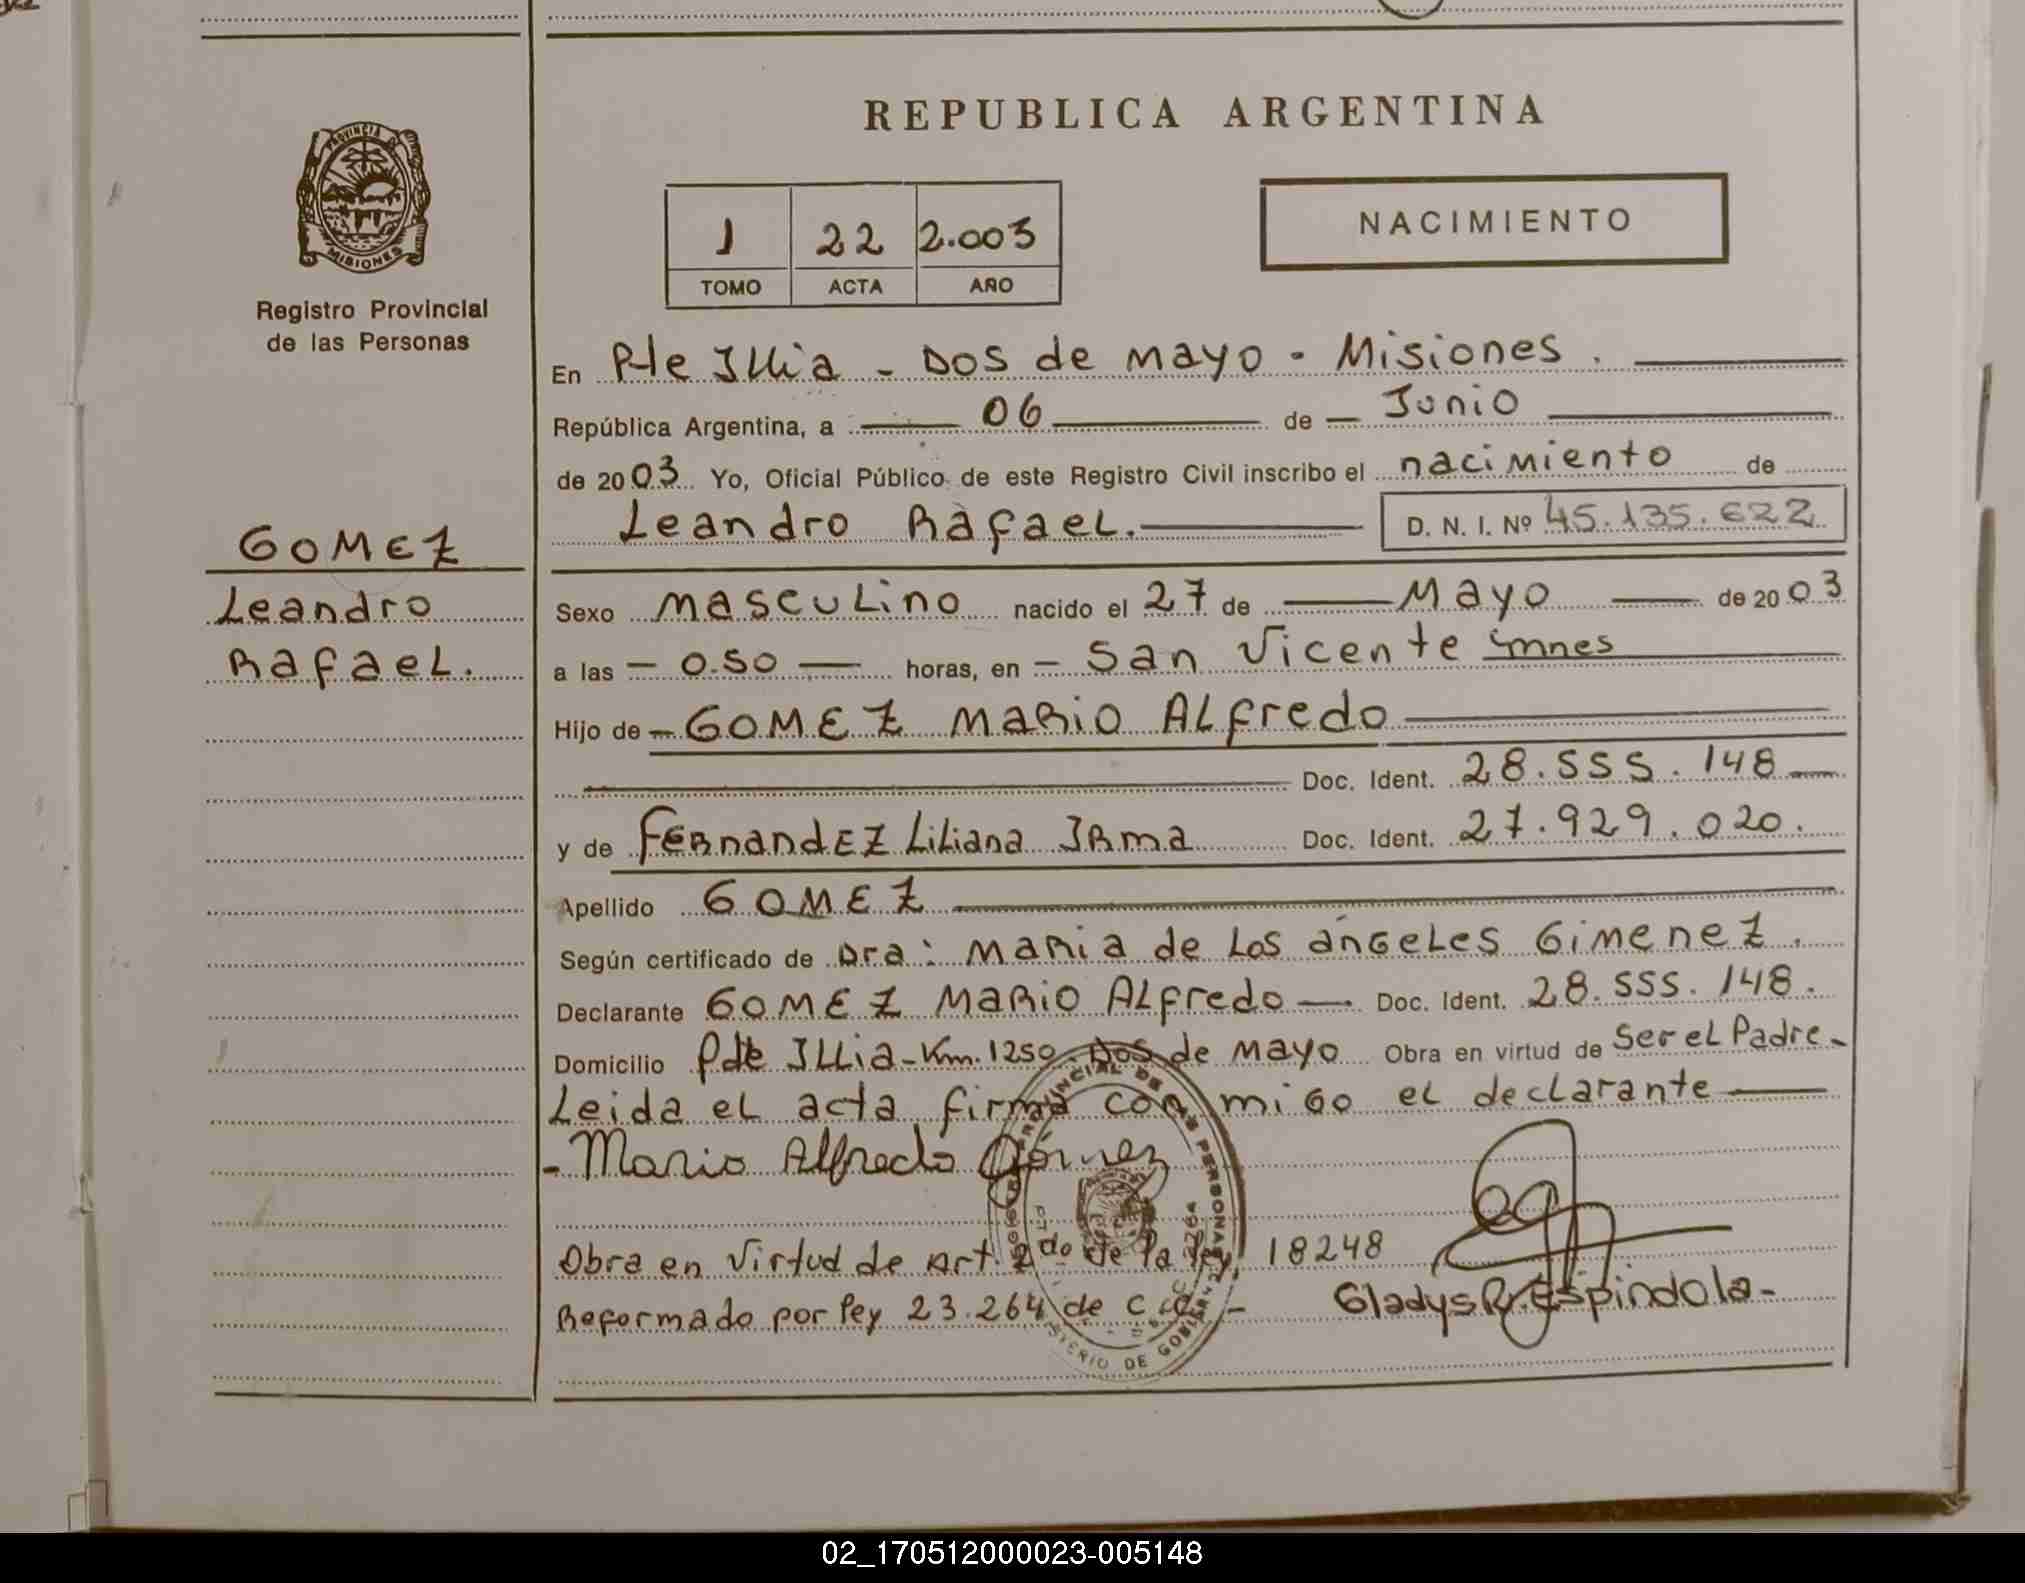 REPUBLICA ARGENTINA
PROVINCIA DE
MISIONES
Registro Provincial
de las Personas
1 22 2.003
TOMO ACTA AÑO
NACIMIENTO
En Pte Illia - Dos de mayo - Misiones.
República Argentina, a 06 de Junio
de 2003 Yo, Oficial Público de este Registro Civil inscribo el nacimiento de
Leandro Rafael. D. N. I. Nº 45.135.622
GOMEZ
Leandro
Rafael.
Sexo masculino nacido el 27 de Mayo de 2003
a las 0.50 horas, en San Vicente mnes
Hijo de GOMEZ MARIO ALfredo
Doc. Ident. 28.555.148
y de FERnandEZ Liliana IRma Doc. Ident. 27.929.020.
Apellido GOMEZ
Según certificado de Dra: Maria de Los ángeles Gimenez.
Declarante GOMEZ MARIO ALfredo Doc. Ident. 28.555.148.
Domicilio Pdte Illia-Km.1250. Dos de mayo Obra en virtud de Ser el Padre-
Leida el acta firma con migo el declarante
- Mario Alfredo Gómez
Obra en virtud de Art. 2do de la ley 18248
Reformado por ley 23.264 de
Gladys R. Espindola-
02_170512000023-005148